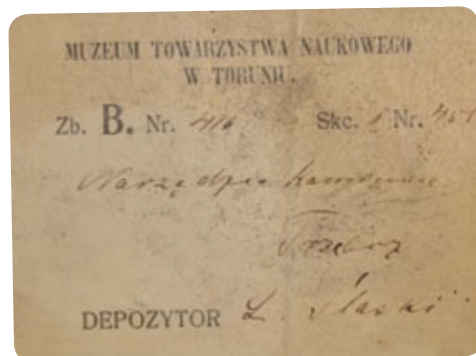 MUZEUM TOWARZYSTWA NAUKOWEGO
W TORUNIU.
Zb. B. Nr. 416 Skc. Nr.
Narzędzie kamienne
Trzebcz
DEPOZYTOR L. Slaski